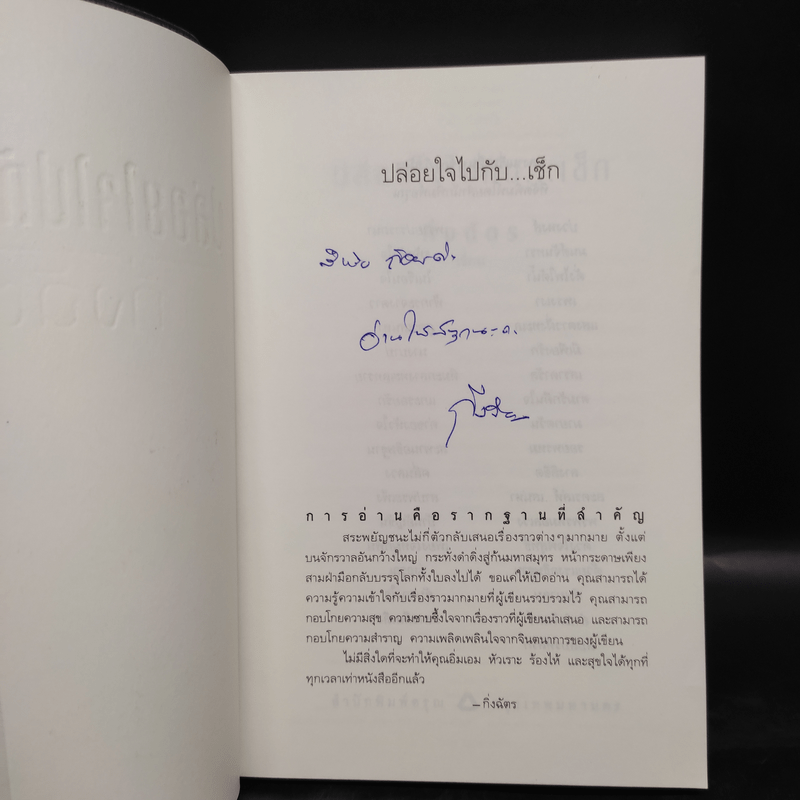 ปล่อยใจไปกับ...เช็ก
อ่านให้สนุกนะคะ
การอ่านคือรากฐานที่สำคัญ
สระพยัญชนะไม่กี่ตัวกลับเสนอเรื่องราวต่างๆมากมาย ตั้งแต่
บนจักรวาลอันกว้างใหญ่ กระทั่งดำดิ่งสู่ก้นมหาสมุทร หน้ากระดาษเพียง
สามฝ่ามือกลับบรรจุโลกทั้งใบลงไปได้ ขอแค่ให้เปิดอ่าน คุณสามารถได้
ความรู้ความเข้าใจกับเรื่องราวมากมายที่ผู้เขียนรวบรวมไว้ คุณสามารถ
กอบโกยความสุข ความซาบซึ้งใจจากเรื่องราวที่ผู้เขียนนำเสนอ และสามารถ
กอบโกยความสำราญ ความเพลิดเพลินใจจากจินตนาการของผู้เขียน
ไม่มีสิ่งใดที่จะทำให้คุณอิ่มเอม หัวเราะ ร้องไห้ และสุขใจได้ทุกที่
ทุกเวลาเท่าหนังสืออีกแล้ว
– กิ่งฉัตร